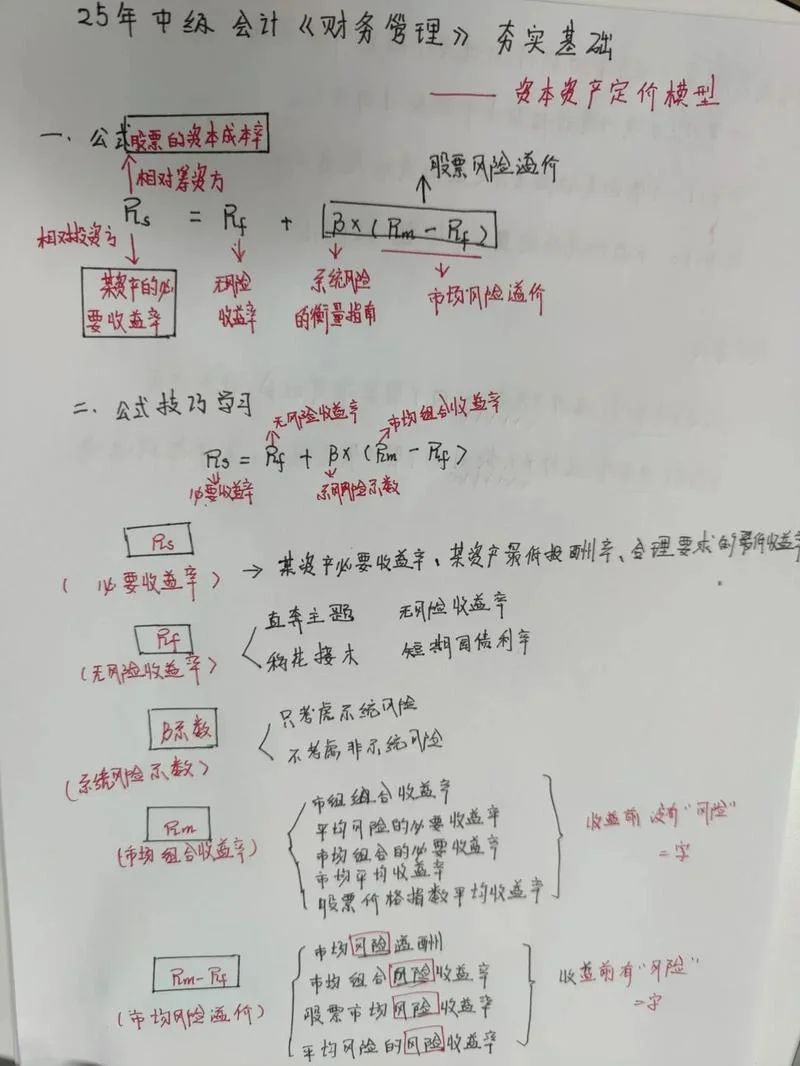 25年中级会计《财务管理》夯实基础
—— 资本资产定价模型
一、公式 股票的资本成本率
相对筹资方
股票风险溢价
Rs = Rf + β×(Rm-Rf)
相对投资方
某资产的必要收益率
无风险收益率
系统风险的衡量指南
市场风险溢价
二、公式技巧学习
无风险收益率 市均组合收益率
Rs = Rf + β×(Rm-Rf)
必要收益率 示风风险示数
Rs
(必要收益率) → 某资产必要收益率、某资产最低报酬率、合理要求的最低收益率
Rf
(无风险收益率)
直奔主题 无风险收益率
移花接木 短期国债利率
β系数
(系统风险示数)
只考虑示统风险
不考虑非示统风险
Rm
(市场组合收益率)
市组组合收益率
平均风险的必要收益率
市场组合的必要收益率
市场平均收益率
股票价格指数平均收益率
收益前没有“风险”
二字
Rm-Rf
(市场风险溢价)
市场风险溢酬
市场组合风险收益率
股票市场风险收益率
平均风险的风险收益率
收益前有“风险”
二字